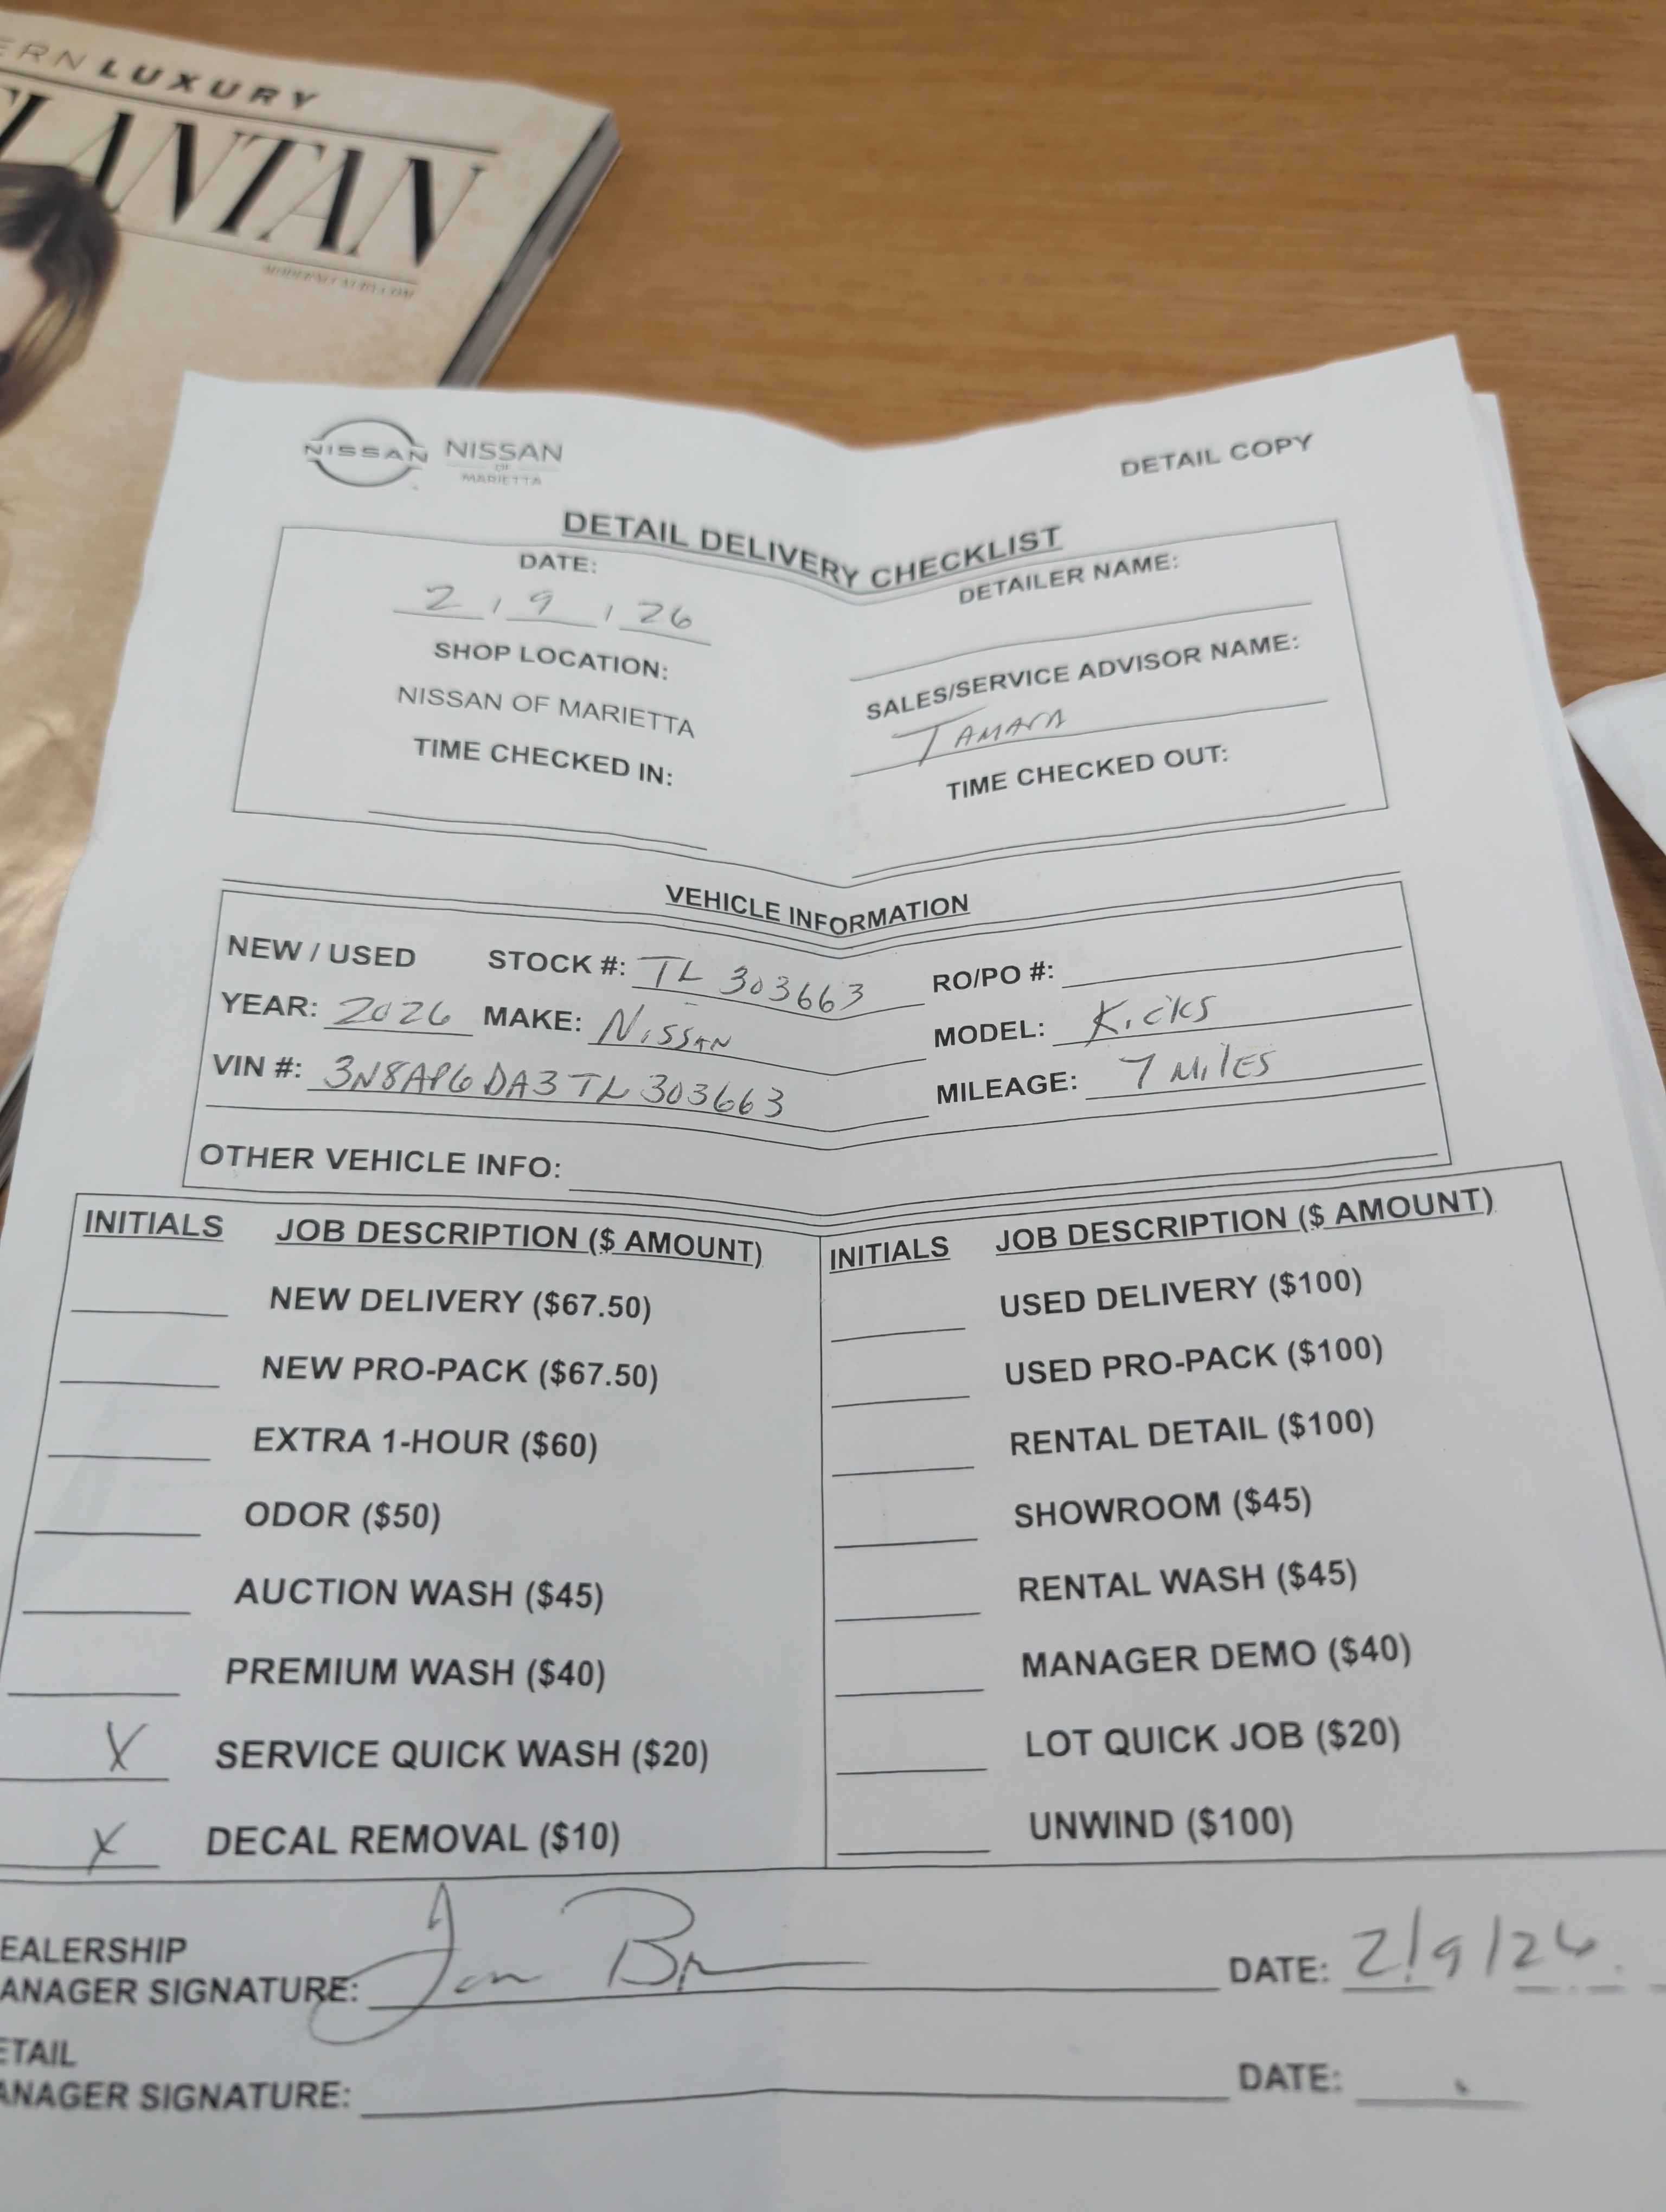 ERN LUXURY
LANTAN
NISSAN NISSAN
OF
MARIETTA
DETAIL COPY
DETAIL DELIVERY CHECKLIST
DATE:
2 / 9 / 26
DETAILER NAME:
SHOP LOCATION:
NISSAN OF MARIETTA
SALES/SERVICE ADVISOR NAME:
TAMARA
TIME CHECKED IN:
TIME CHECKED OUT:
VEHICLE INFORMATION
NEW / USED STOCK #: TL 303663 RO/PO #:
YEAR: 2026 MAKE: NISSAN MODEL: Kicks
VIN #: 3N8AP6DA3TL303663 MILEAGE: 7 MILES
OTHER VEHICLE INFO:
INITIALS JOB DESCRIPTION ($ AMOUNT) INITIALS JOB DESCRIPTION ($ AMOUNT)
NEW DELIVERY ($67.50) USED DELIVERY ($100)
NEW PRO-PACK ($67.50) USED PRO-PACK ($100)
EXTRA 1-HOUR ($60) RENTAL DETAIL ($100)
ODOR ($50) SHOWROOM ($45)
AUCTION WASH ($45) RENTAL WASH ($45)
PREMIUM WASH ($40) MANAGER DEMO ($40)
X SERVICE QUICK WASH ($20) LOT QUICK JOB ($20)
X DECAL REMOVAL ($10) UNWIND ($100)
EALERSHIP
ANAGER SIGNATURE: DATE: 2/9/26
ETAIL
ANAGER SIGNATURE: DATE: